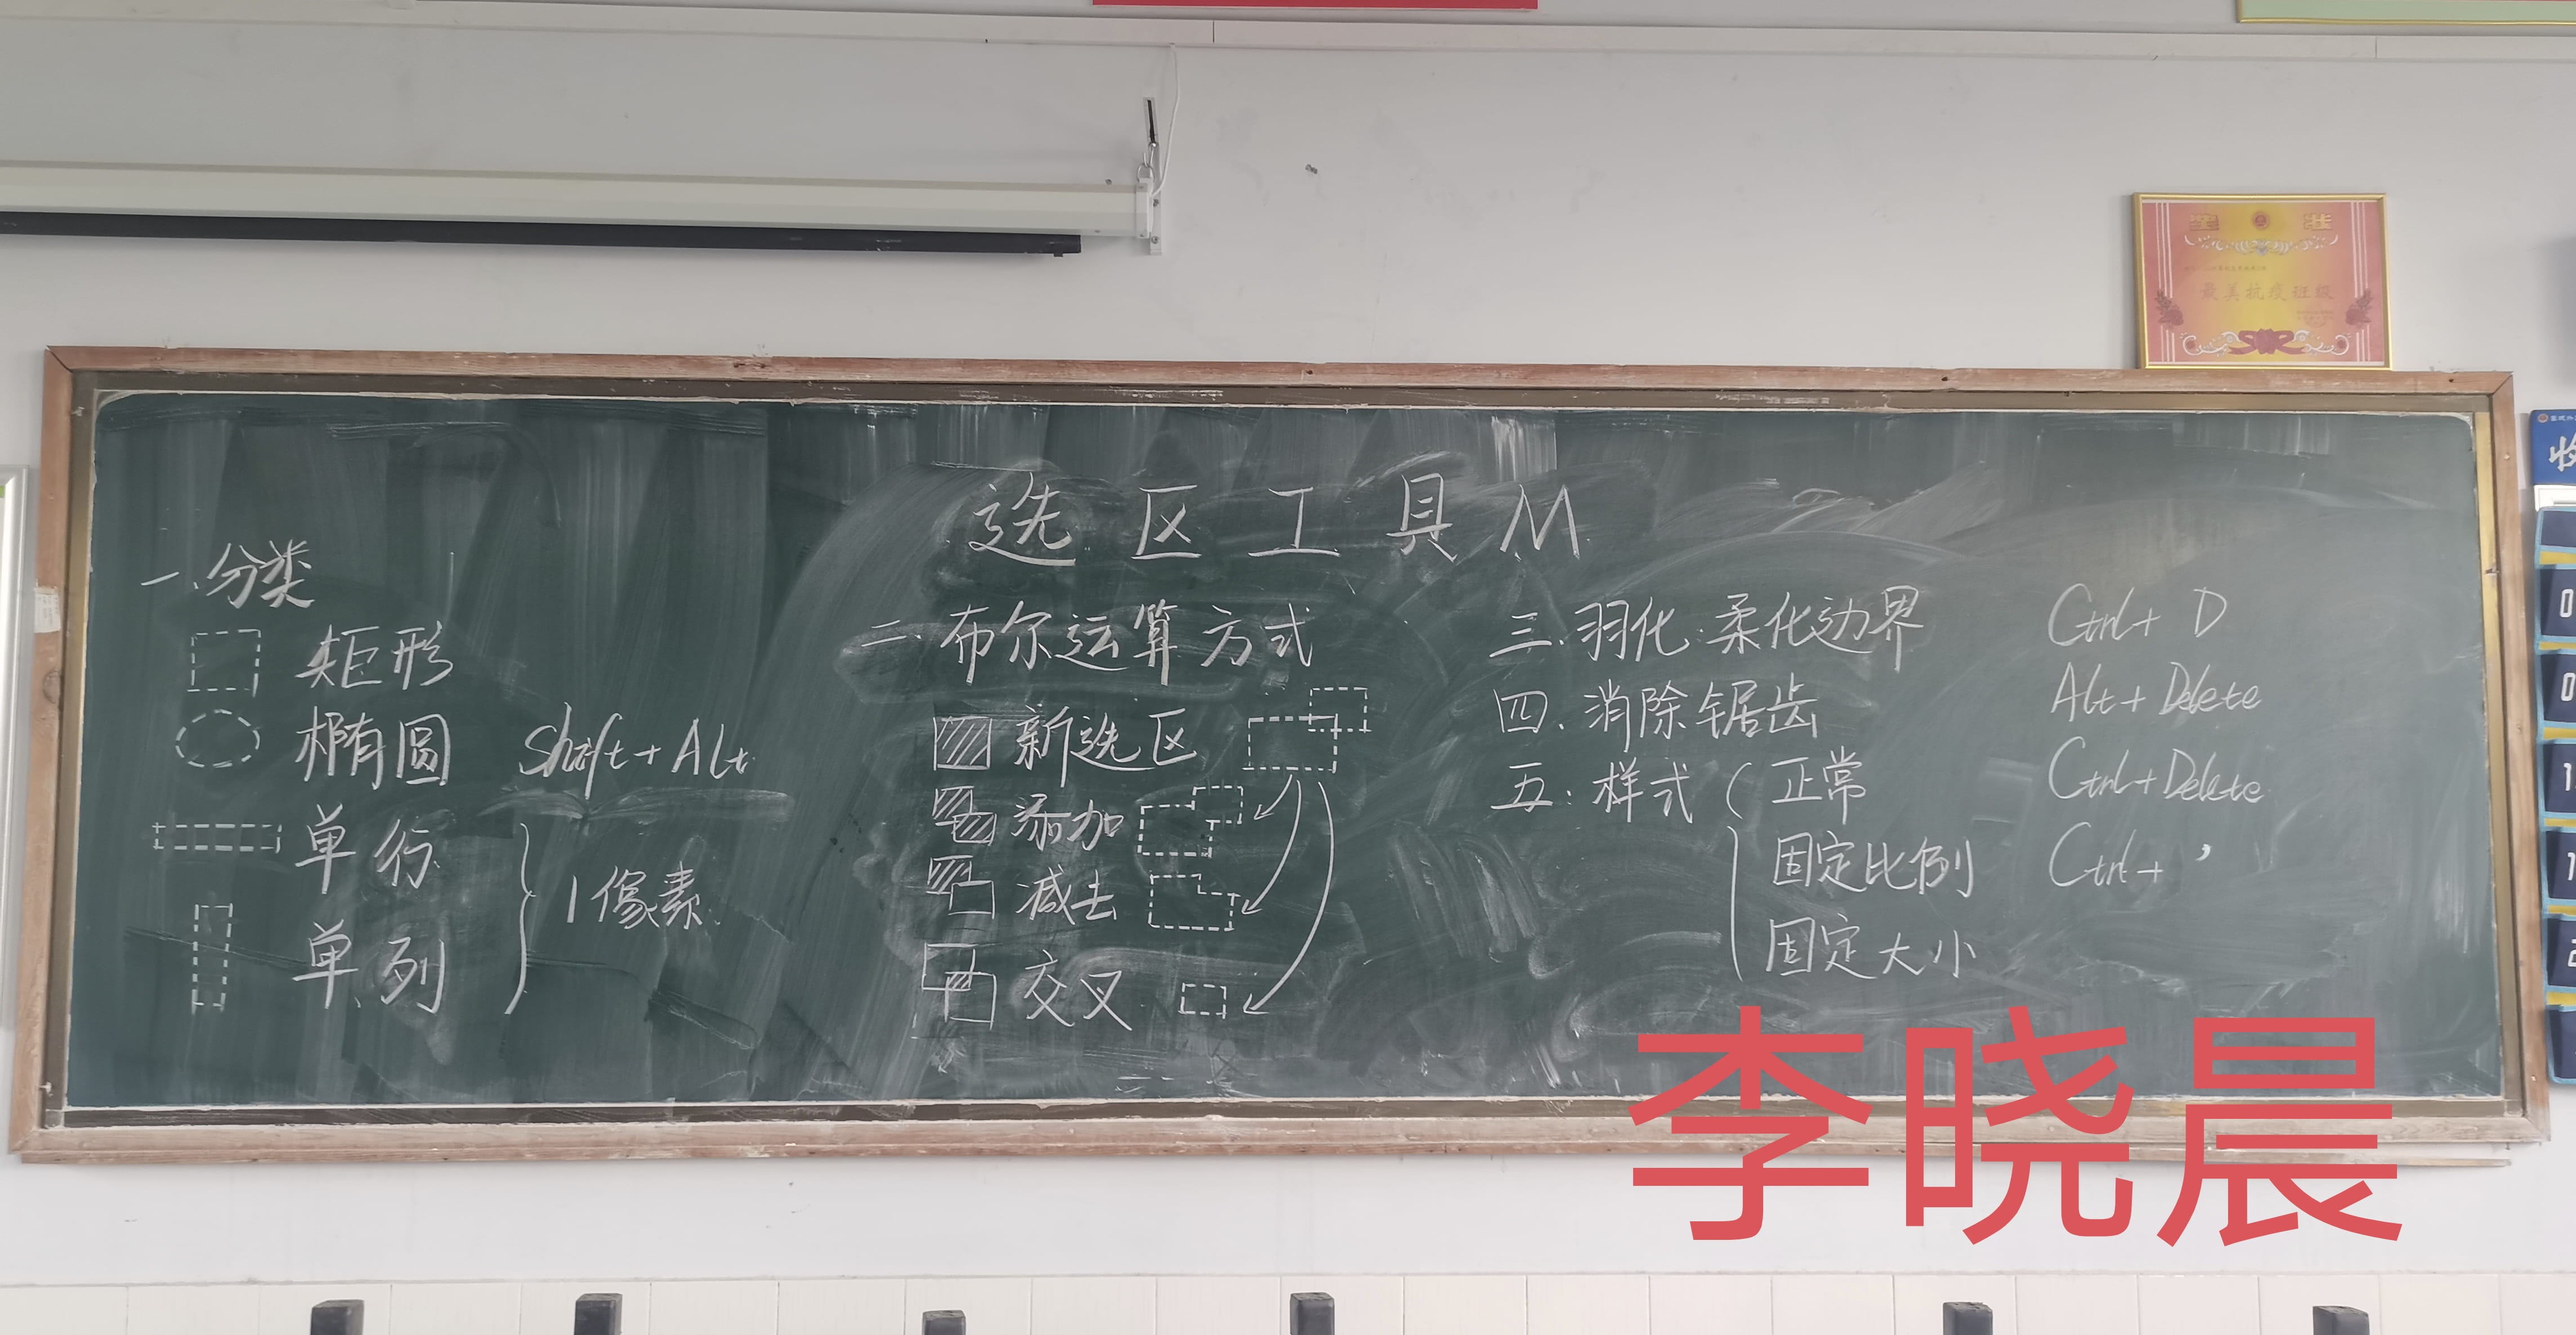 选区工具M
一.分类
矩形
椭圆 Shift+Alt
单行
单列
1像素
二.布尔运算方式
新选区
添加
减去
交叉
三.羽化:柔化边界
四.消除锯齿
五:样式 正常
固定比例
固定大小
Ctrl+D
Alt+Delete
Ctrl+Delete
Ctrl+'
最美抗疫班级
李晓晨